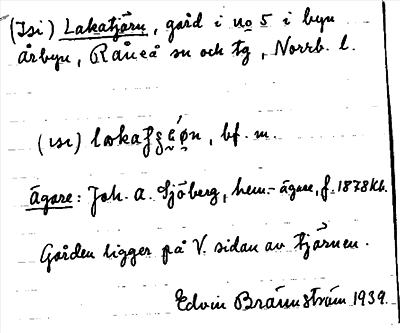 (Isi) Lakatjärn, gård i no 5 i byn
årbyn, Råneå sn och tg, Norrb. l.
(ısı) , bf. m.
Ägare: Joh. A. Sjöberg, hem.-ägare, f. 1878 Kb.
Gården ligger på V. sidan av tjärnen.
Edvin Brännström 1939.